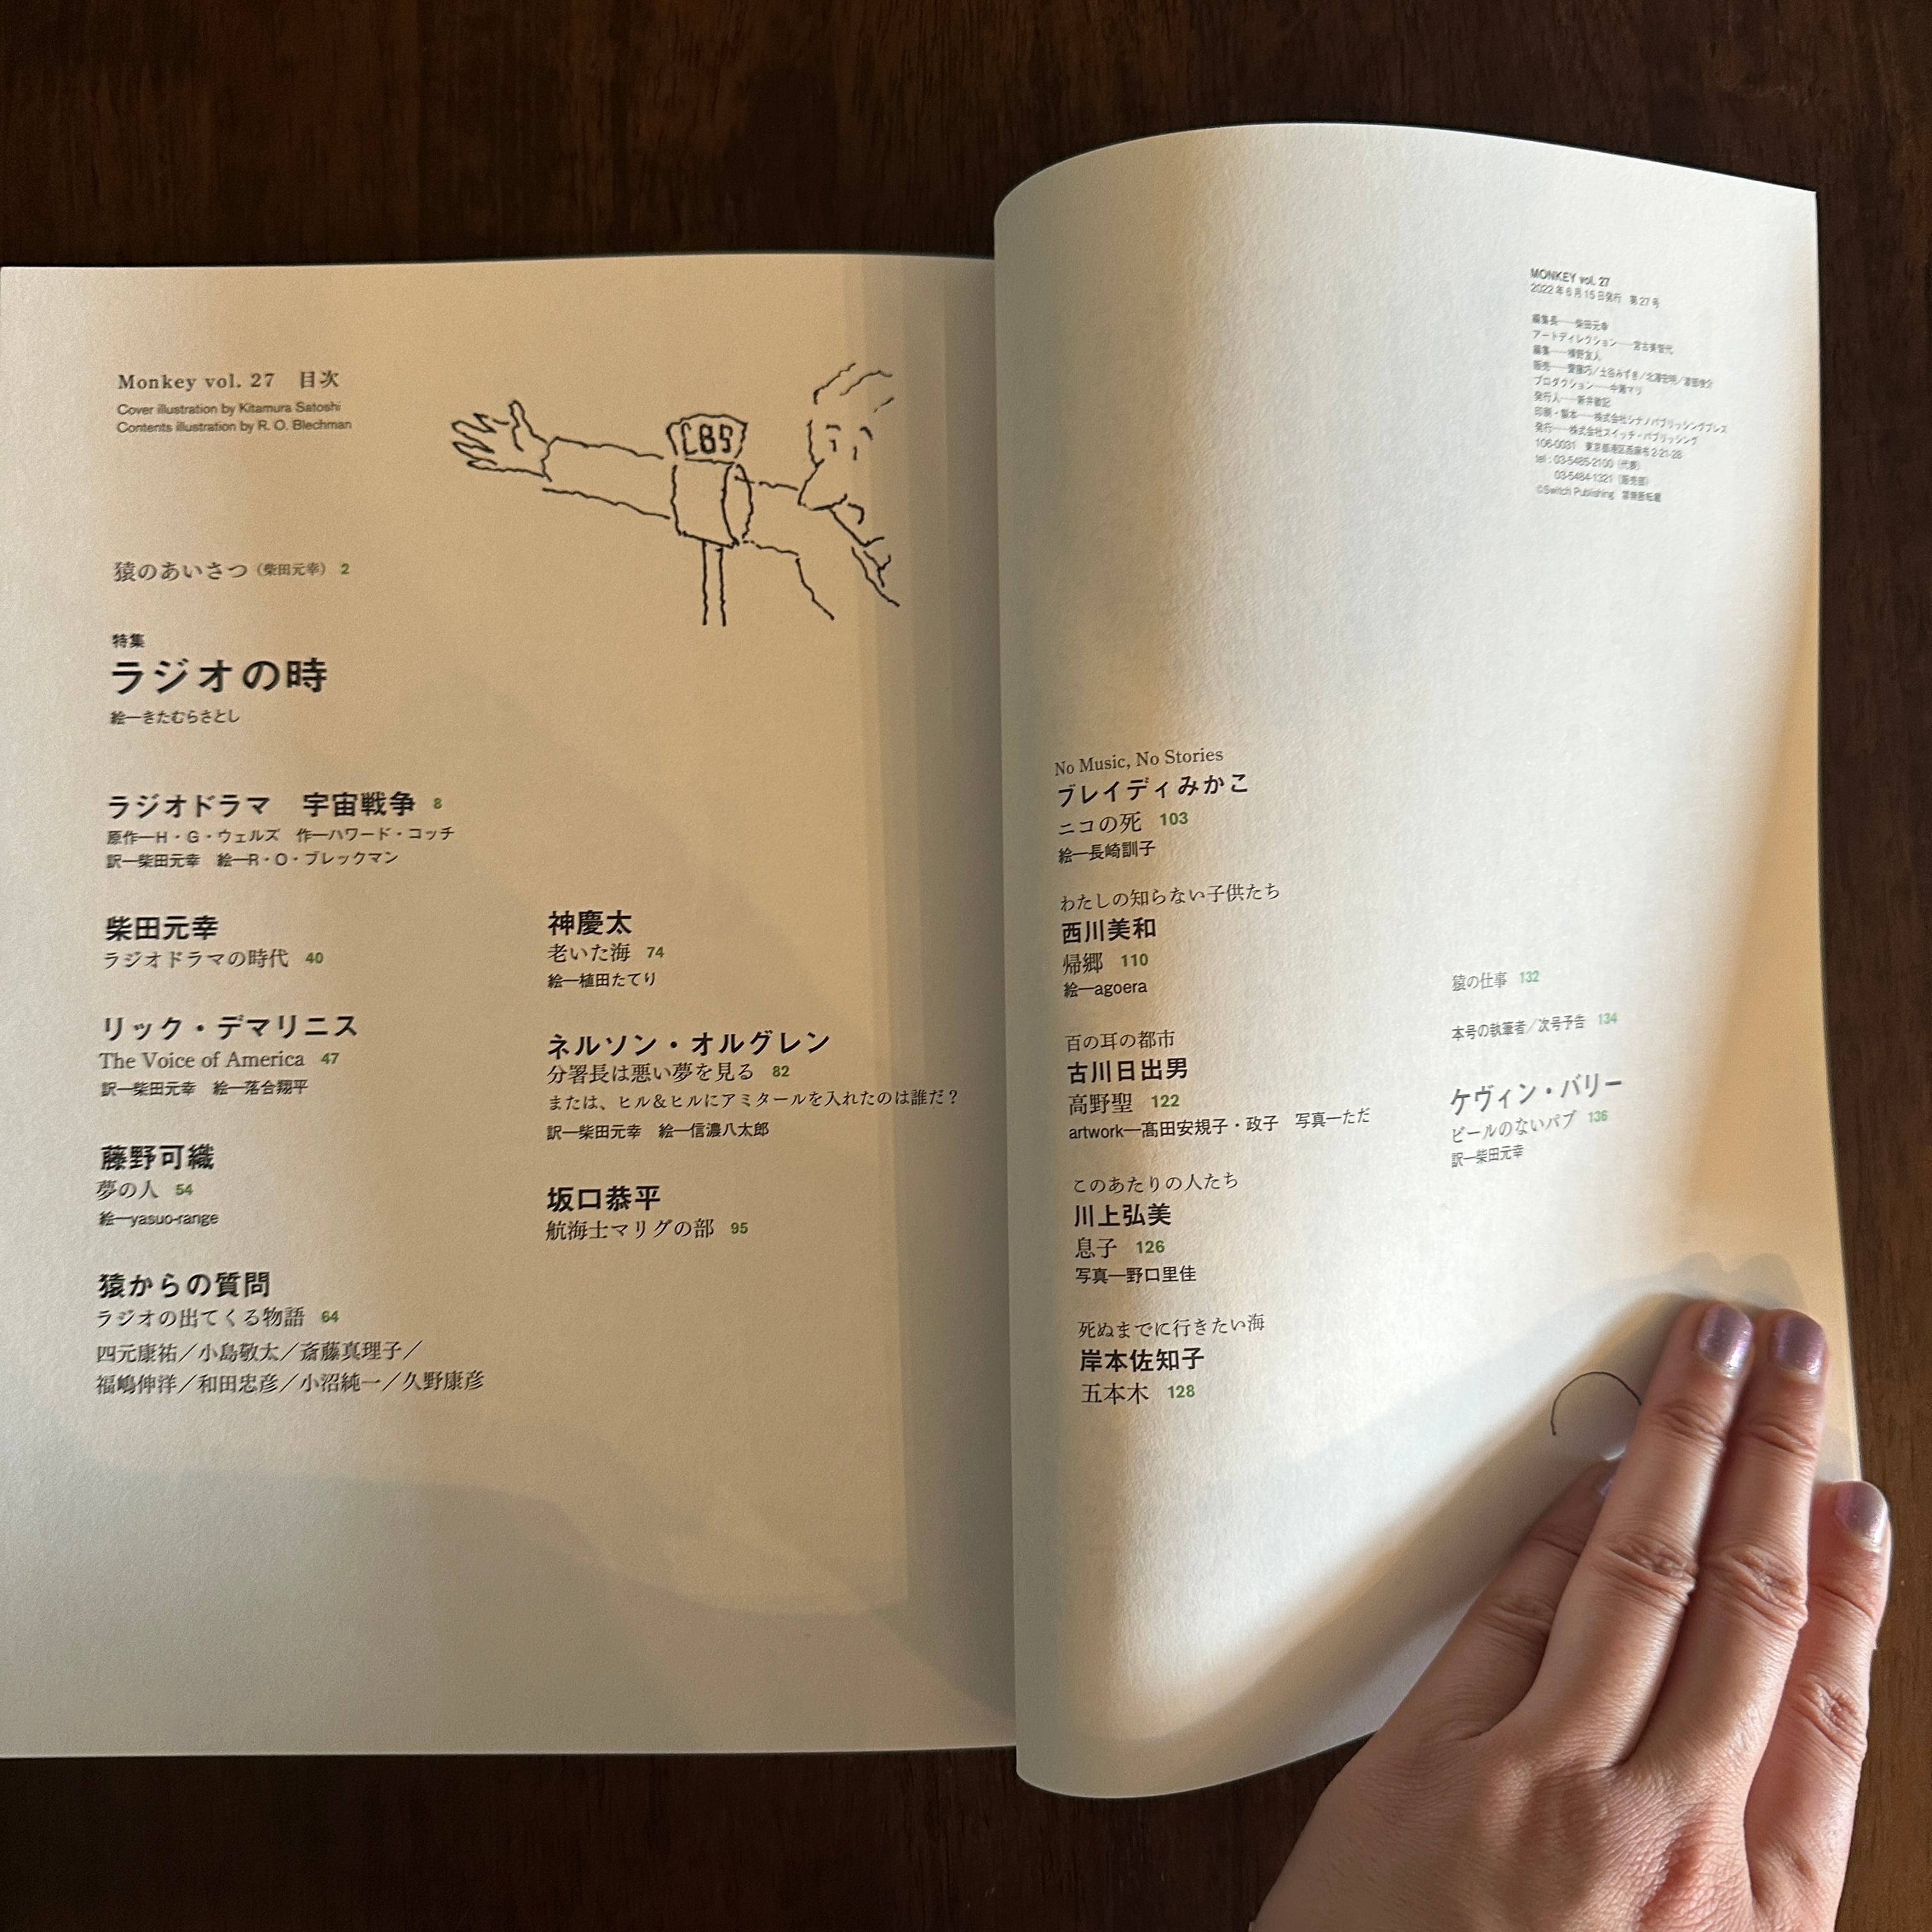 Monkey vol. 27　目次
Cover illustration by Kitamura Satoshi
Contents illustration by R. O. Blechman
CBS
猿のあいさつ（柴田元幸） 2
特集
ラジオの時
絵―きたむらさとし
ラジオドラマ　宇宙戦争 8
原作―H・G・ウェルズ　作―ハワード・コッチ
訳―柴田元幸　絵―R・O・ブレックマン
柴田元幸
ラジオドラマの時代 40
リック・デマリニス
The Voice of America 47
訳―柴田元幸　絵―落合翔平
藤野可織
夢の人 54
絵―yasuo-range
猿からの質問
ラジオの出てくる物語 64
四元康祐／小島敬太／斎藤真理子／
福嶋伸洋／和田忠彦／小沼純一／久野康彦
神慶太
老いた海 74
絵―植田たてり
ネルソン・オルグレン
分署長は悪い夢を見る 82
または、ヒル&ヒルにアミタールを入れたのは誰だ？
訳―柴田元幸　絵―信濃八太郎
坂口恭平
航海士マリグの部 95
No Music, No Stories
ブレイディみかこ
ニコの死 103
絵―長崎訓子
わたしの知らない子供たち
西川美和
帰郷 110
絵―agoera
百の耳の都市
古川日出男
高野聖 122
artwork―髙田安規子・政子　写真―ただ
このあたりの人たち
川上弘美
息子 126
写真―野口里佳
死ぬまでに行きたい海
岸本佐知子
五本木 128
猿の仕事 132
本号の執筆者／次号予告 134
ケヴィン・バリー
ビールのないパブ 136
訳―柴田元幸
MONKEY vol. 27
2022年6月15日発行　第27号
編集長――柴田元幸
アートディレクション――宮古美智代
編集――槇野友人
販売――齋藤巧／土谷みずき／北澤宏明／
プロダクション――中瀬マリ
発行人――新井敏記
印刷・製本――株式会社シナノパブリッシングプレス
発行――株式会社スイッチ・パブリッシング
106-0031　東京都港区西麻布2-21-28
tel : 03-5485-2100（代表）
03-5484-1321（販売部）
©Switch Publishing　禁無断転載